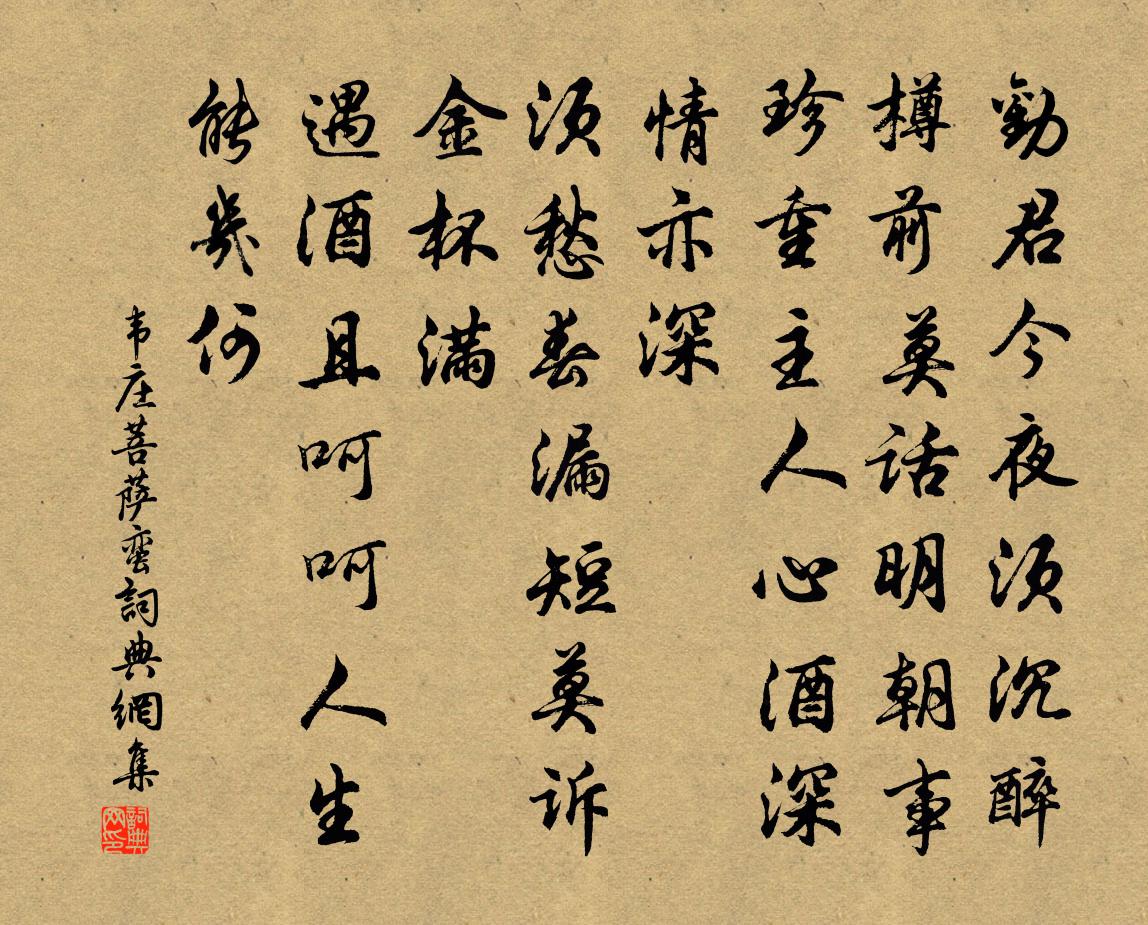 勸君今夜须沉醉
樽前莫话明朝事
珍重主人心酒深
情亦深
须愁春漏短莫诉
金杯滿
遇酒且呵呵人生
能幾何
韦庄菩萨蛮詞典網集
詞典网印